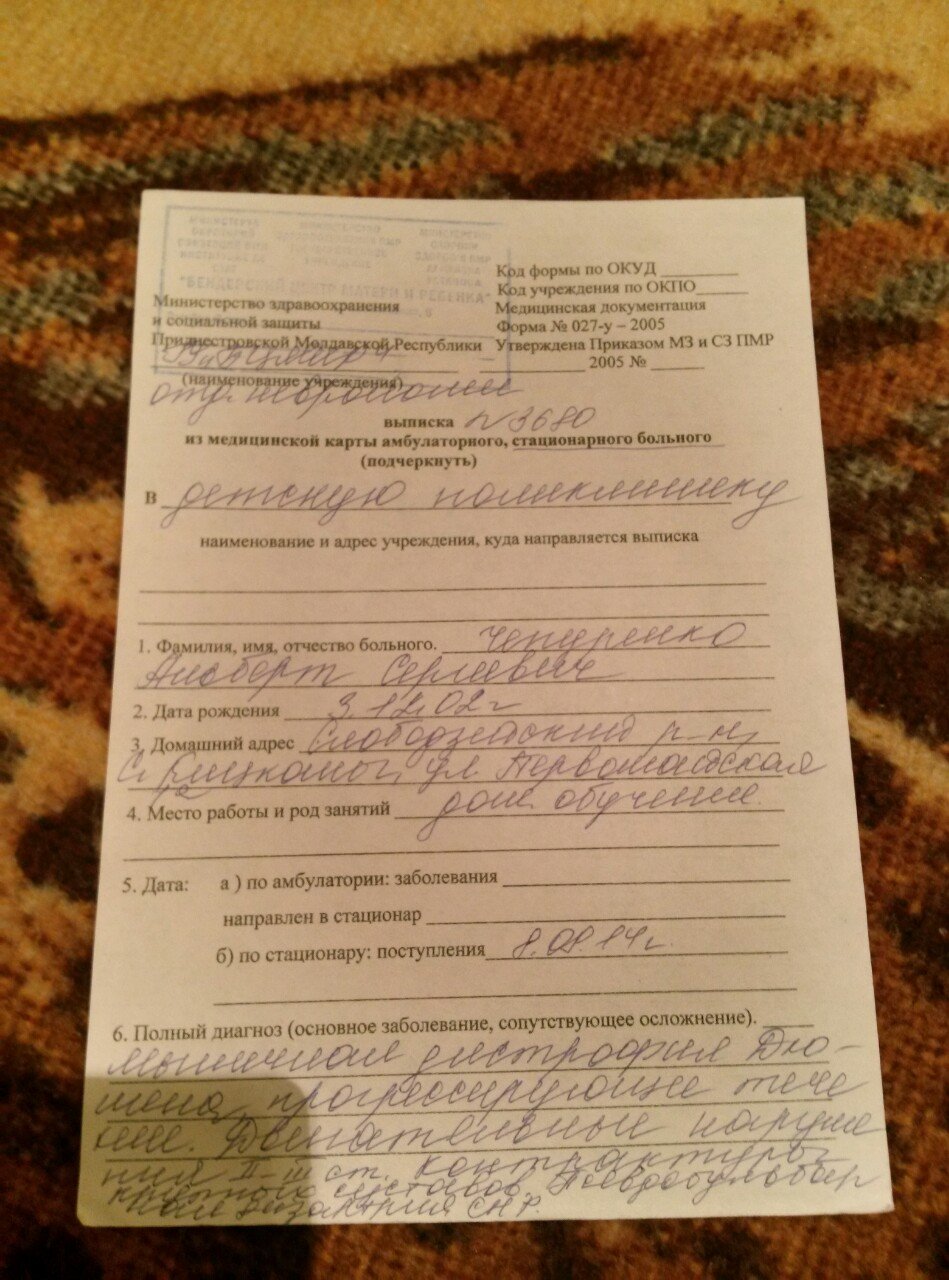 "БЕНДЕРСКИЙ ЦЕНТР МАТЕРИ И РЕБЕНКА"
Код формы по ОКУД
Код учреждения по ОКПО
Министерство здравоохранения
и социальной защиты
Приднестровской Молдавской Республики
Медицинская документация
Форма № 027-у – 2005
Утверждена Приказом МЗ и СЗ ПМР
2005 №
(наименование учреждения)
отд. неврологии
выписка N 3680
из медицинской карты амбулаторного, стационарного больного
(подчеркнуть)
В детскую поликлинику
наименование и адрес учреждения, куда направляется выписка
1. Фамилия, имя, отчество больного. Чепуренко
Альберт Сергеевич
2. Дата рождения 3.12.02г
3. Домашний адрес Слободзейский р-н,
с. Кицканы, ул. Первомайская
4. Место работы и род занятий дом. обучение
5. Дата: а ) по амбулатории: заболевания
направлен в стационар
б) по стационару: поступления 8.09.14г.
6. Полный диагноз (основное заболевание, сопутствующее осложнение).
Мышечная дистрофия Дю-
шена, прогрессирующее тече
ние. Двигательные наруше
ний II-III ст. контрактуры
суставов. Псевдобульбар
ная дизартрия